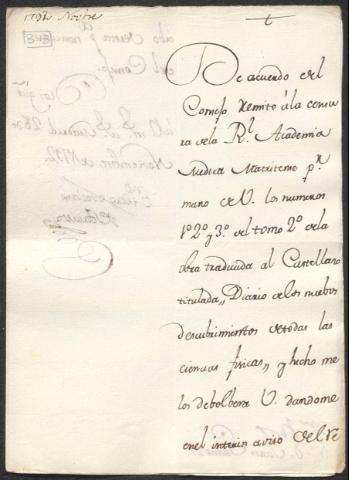 1792 Novbre
343
De acuerdo del
Consejo remito á la censu
ra de la Rl. Academia
Medica Matritense pr.
mano de V. los numeros
1º 2º y 3º del tomo 2º de la
obra traducida al Castellano
titulada „ Diario de los nuebos
descubrimientos de todas las
ciencias fisicas „ y hecho me
los debolberá V. dandome
en el interin aviso del re